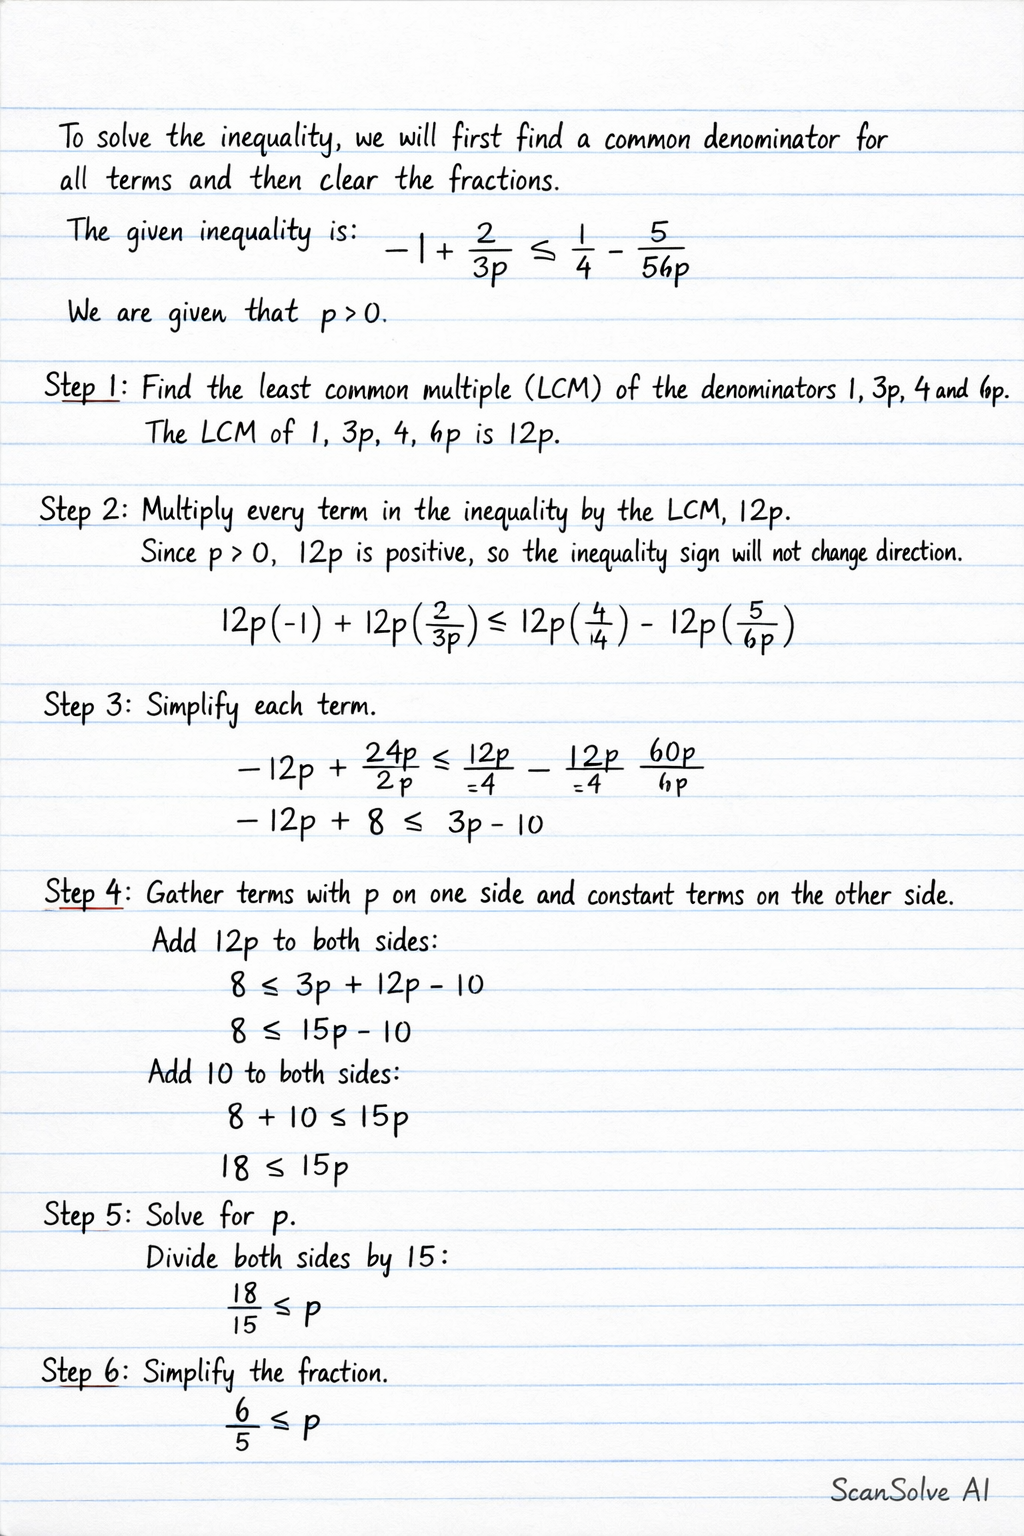 To solve the inequality, we will first find a common denominator for
all terms and then clear the fractions.
The given inequality is: -1 + 2/3p ≤ 1/4 - 5/56p
We are given that p > 0.
Step 1: Find the least common multiple (LCM) of the denominators 1, 3p, 4 and 6p.
The LCM of 1, 3p, 4, 6p is 12p.
Step 2: Multiply every term in the inequality by the LCM, 12p.
Since p > 0, 12p is positive, so the inequality sign will not change direction.
12p(-1) + 12p(2/3p) ≤ 12p(4/14) - 12p(5/6p)
Step 3: Simplify each term.
- 12p + 24p/2p ≤ 12p/=4 - 12p/=4 60p/6p
- 12p + 8 ≤ 3p - 10
Step 4: Gather terms with p on one side and constant terms on the other side.
Add 12p to both sides:
8 ≤ 3p + 12p - 10
8 ≤ 15p - 10
Add 10 to both sides:
8 + 10 ≤ 15p
18 ≤ 15p
Step 5: Solve for p.
Divide both sides by 15:
18/15 ≤ p
Step 6: Simplify the fraction.
6/5 ≤ p
ScanSolve AI